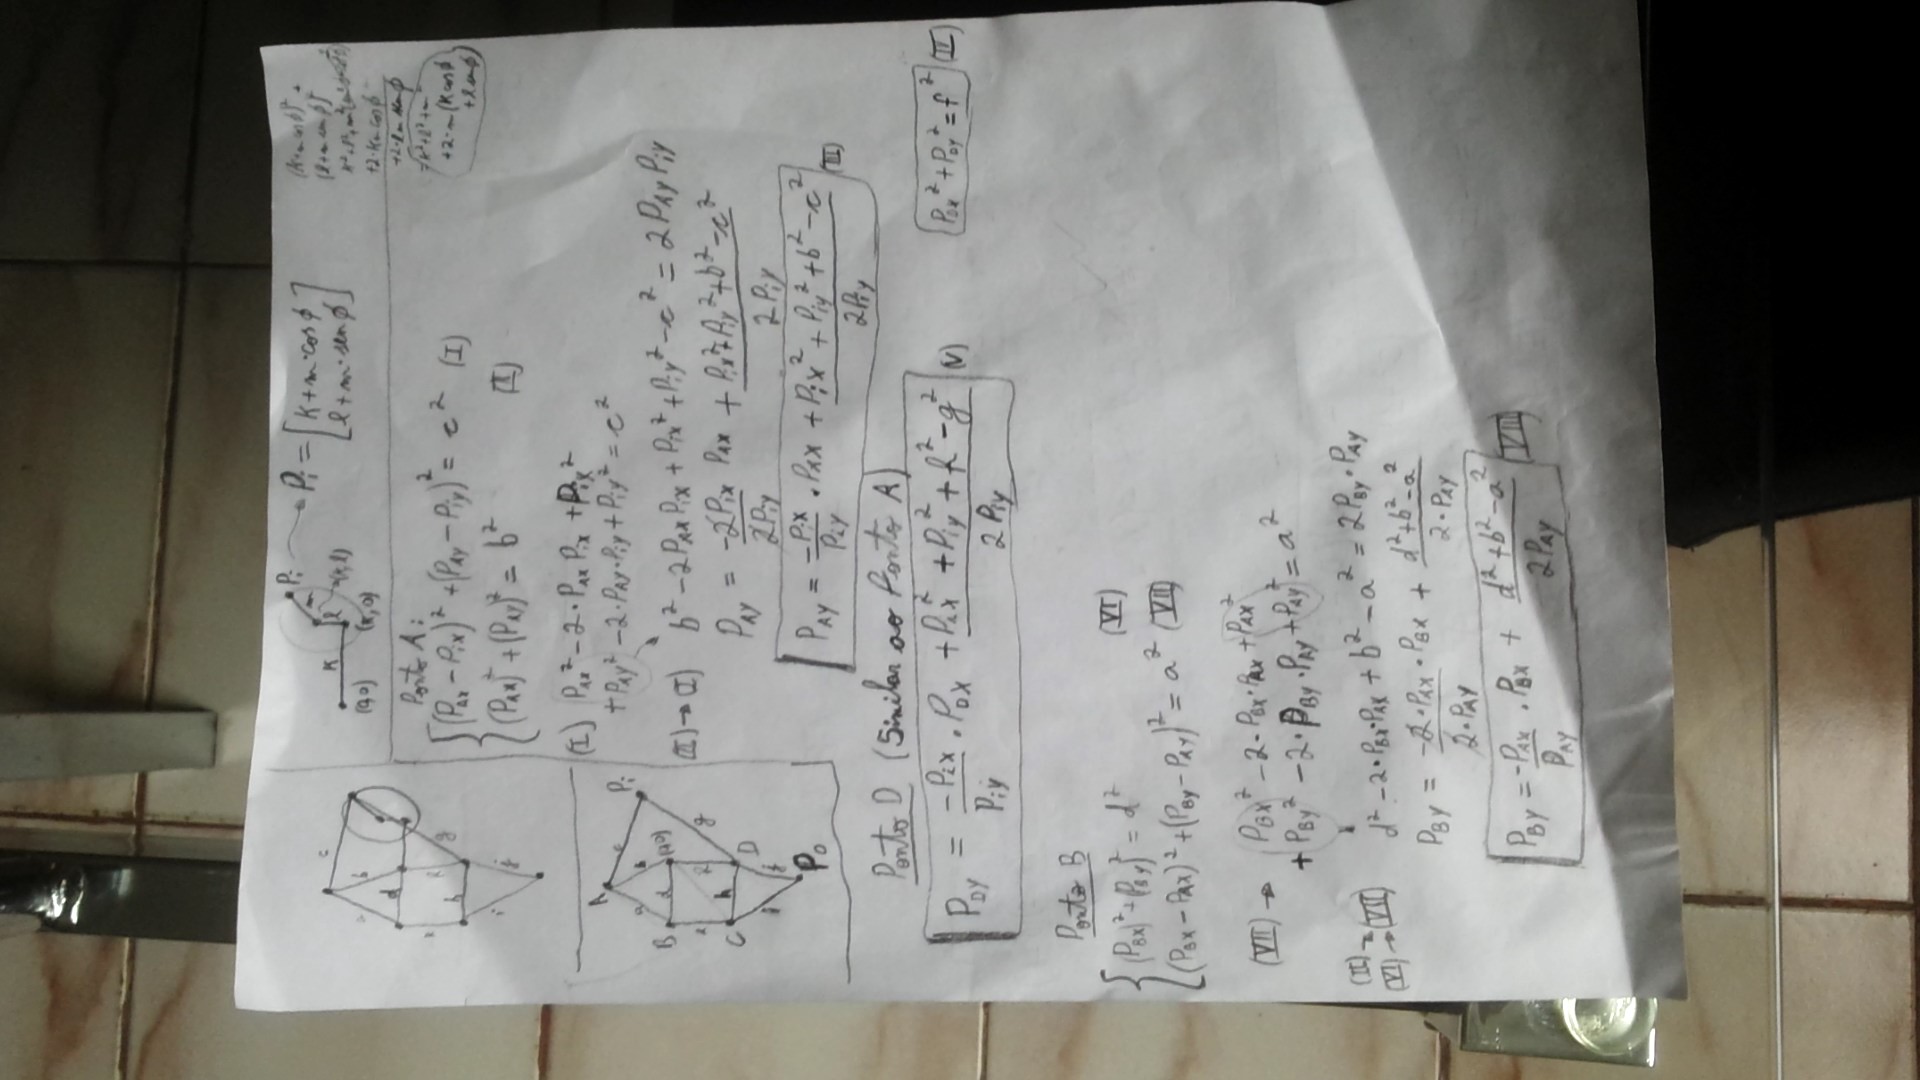 c
b
d
g
h
i
j
k
m
l
(0,0)
(k,0)
(k,l)
Pi
Pi = [k + m·cosϕ
l + m·senϕ]
(k+m cosϕ)² +
(l+m senϕ)²
+2·km cosϕ
+2·lm senϕ
= k²+l²+m²
+2·m(k cosϕ
+l senϕ)
Ponto A:
(PAx − Pix)² + (PAy − Piy)² = c² (I)
(PAx)² + (PAy)² = b² (II)
(I) PAx² − 2·PAx Pix + Pix²
+ PAy² − 2·PAy·Piy + Piy² = c²
(II)→(I) b² − 2PAxPix + Pix² + Piy² − c² = 2PAyPiy
PAy = −2Pix/2Piy PAx + (Pix² + Piy² + b² − c²)/2Piy
PAy = −Pix/Piy · PAx + (Pix² + Piy² + b² − c²)/2Piy (III)
A
a
b
c
Pi
B
d
(0,0)
g
C
h
D
i
j
Po
Ponto D (Similar ao Ponto A)
PDy = −Pix/Piy · PDx + (Pix² + Piy² + f² − g²)/2Piy (V)
PDx² + PDy² = f²
Ponto B
(PBx)² + (PBy)² = d² (VI)
(PBx − PAx)² + (PBy − PAy)² = a² (VII)
(VII)→ PBx² − 2·PBx·PAx + PAx²
+ PBy² − 2·PBy·PAy + PAy² = a²
(II)→
(VI)→ (VII) d² − 2·PBx·PAx + b² − a² = 2PBy·PAy
PBy = −2·PAx/2·PAy · PBx + (d² + b² − a²)/2·PAy
PBy = −PAx/PAy · PBx + (d² + b² − a²)/2PAy (VIII)